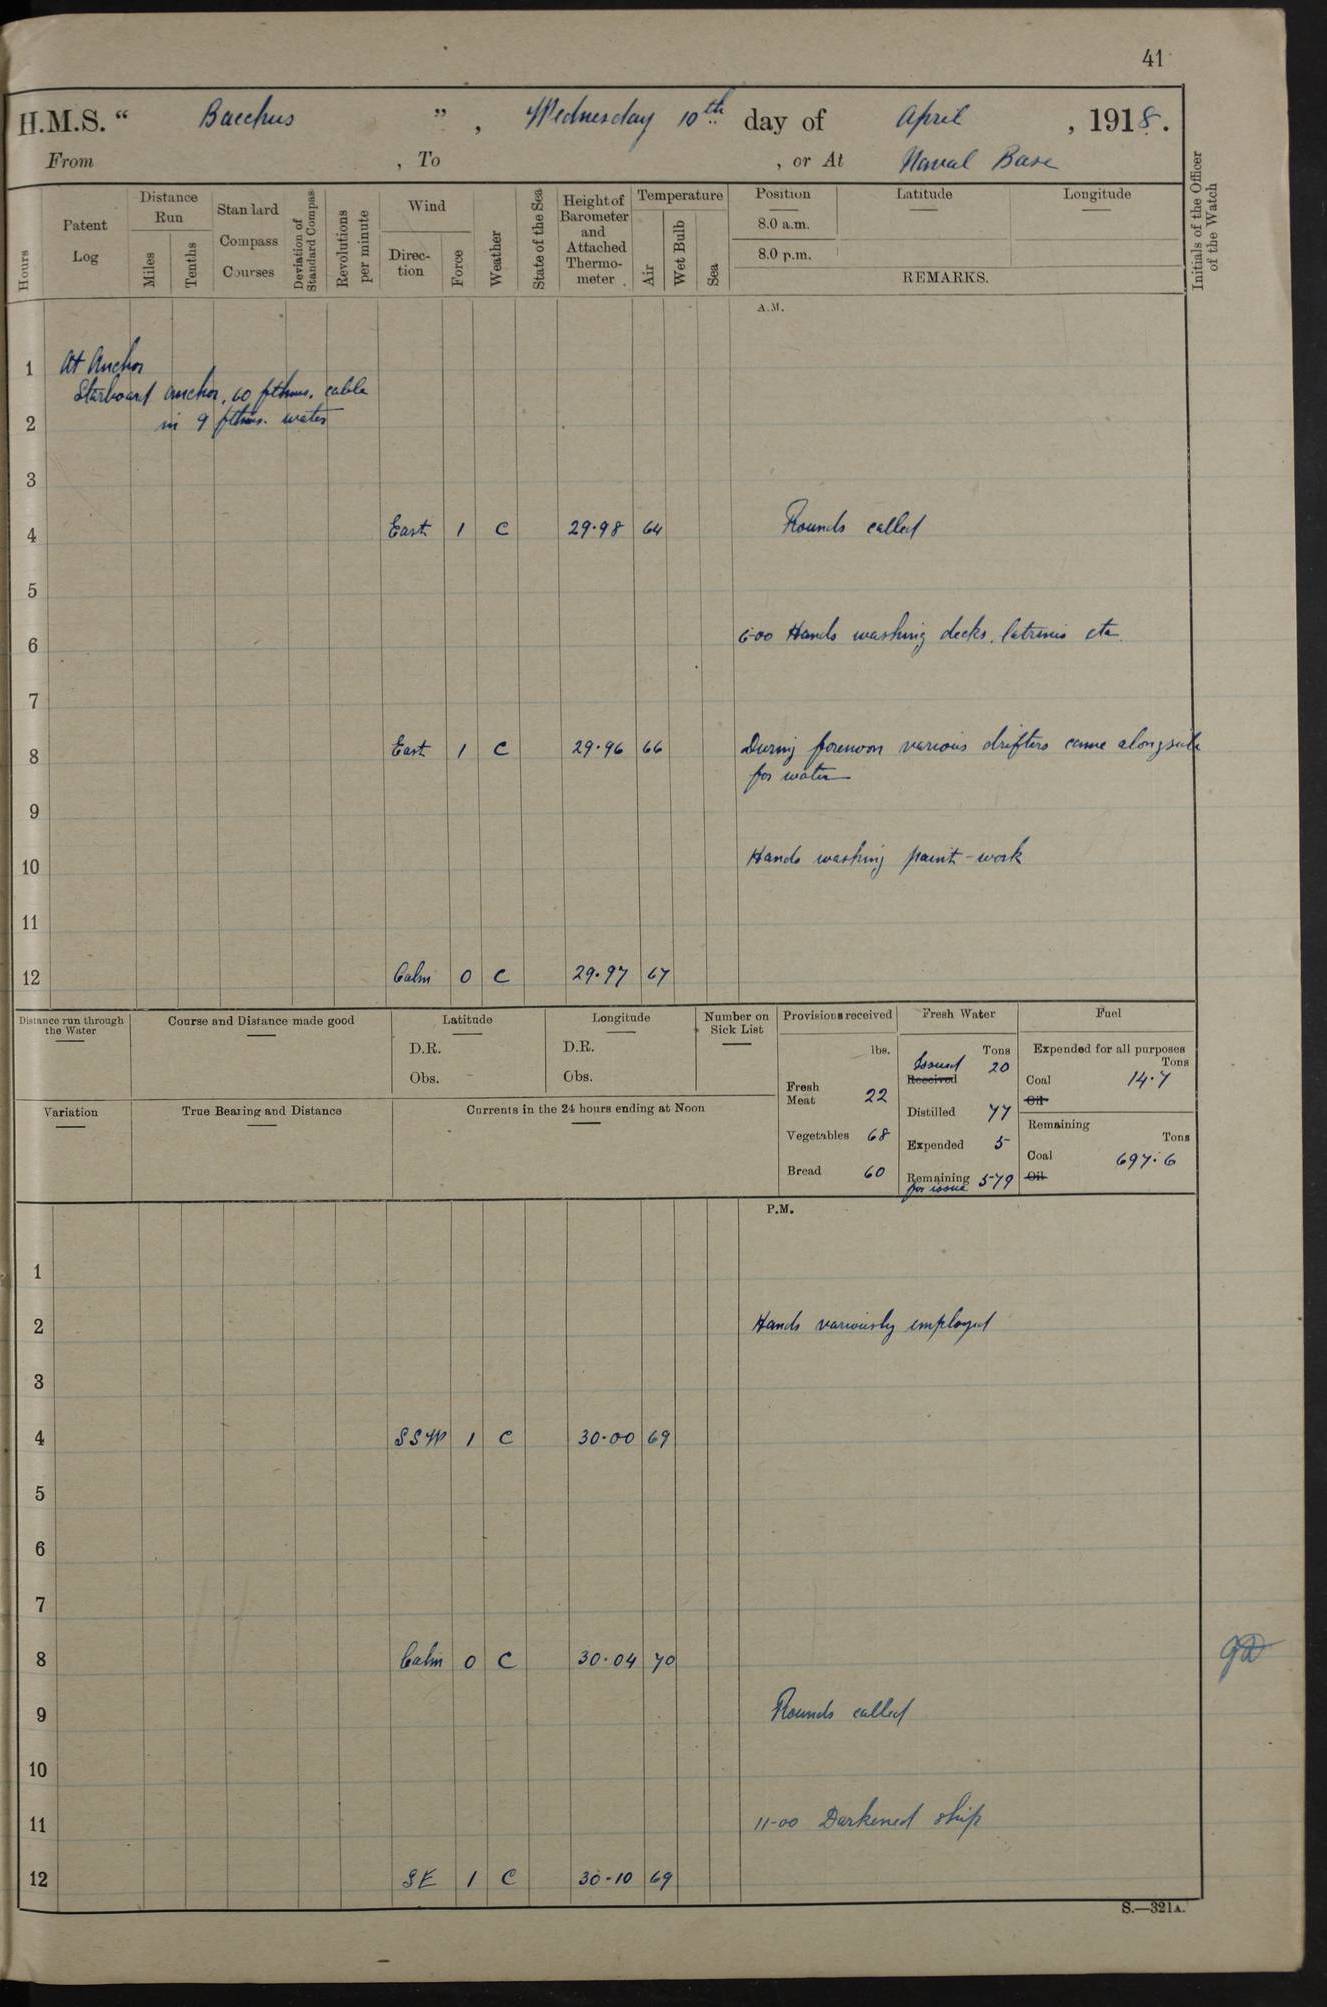 41
H.M.S. “ Bacchus ” , Wednesday 10th day of April , 1918.
From , To , or At Naval Base
Hours
Patent Log
Distance Run
Miles
Tenths
Standard Compass Courses
Deviation of Standard Compass
Revolutions per minute
Wind
Direc-tion
Force
Weather
State of the Sea
Height of Barometer and Attached Thermo-meter
Temperature
Air
Wet Bulb
Sea
Position
8.0 a.m.
8.0 p.m.
Latitude
Longitude
REMARKS.
Initials of the Officer of the Watch
A.M.
1 At Anchor
Starboard anchor, 60 fthms. cable
2 in 9 fthms. water
3
4 East 1 C 29.98 64 Rounds called
5
6 6-00 Hands washing decks, latrines etc.
7
8 East 1 C 29.96 66 During forenoon various drifters came alongside
for water
9
10 Hands washing paint-work
11
12 Calm 0 C 29.97 67
Distance run through the Water
Course and Distance made good
Latitude
D.R.
Obs.
Longitude
D.R.
Obs.
Number on Sick List
Provisions received
lbs.
Fresh Meat 22
Vegetables 68
Bread 60
Fresh Water
Tons
Issued 20
Received
Distilled 77
Expended 5
Remaining 579
for issue
Fuel
Expended for all purposes
Tons
Coal 14.7
Oil
Remaining
Tons
Coal 697.6
Oil
Variation
True Bearing and Distance
Currents in the 24 hours ending at Noon
P.M.
1
2 Hands variously employed
3
4 SSW 1 C 30.00 69
5
6
7
8 Calm 0 C 30.04 70
9 Rounds called
10
11 11-00 Darkened ship
12 SE 1 C 30.10 69
S.—321A.